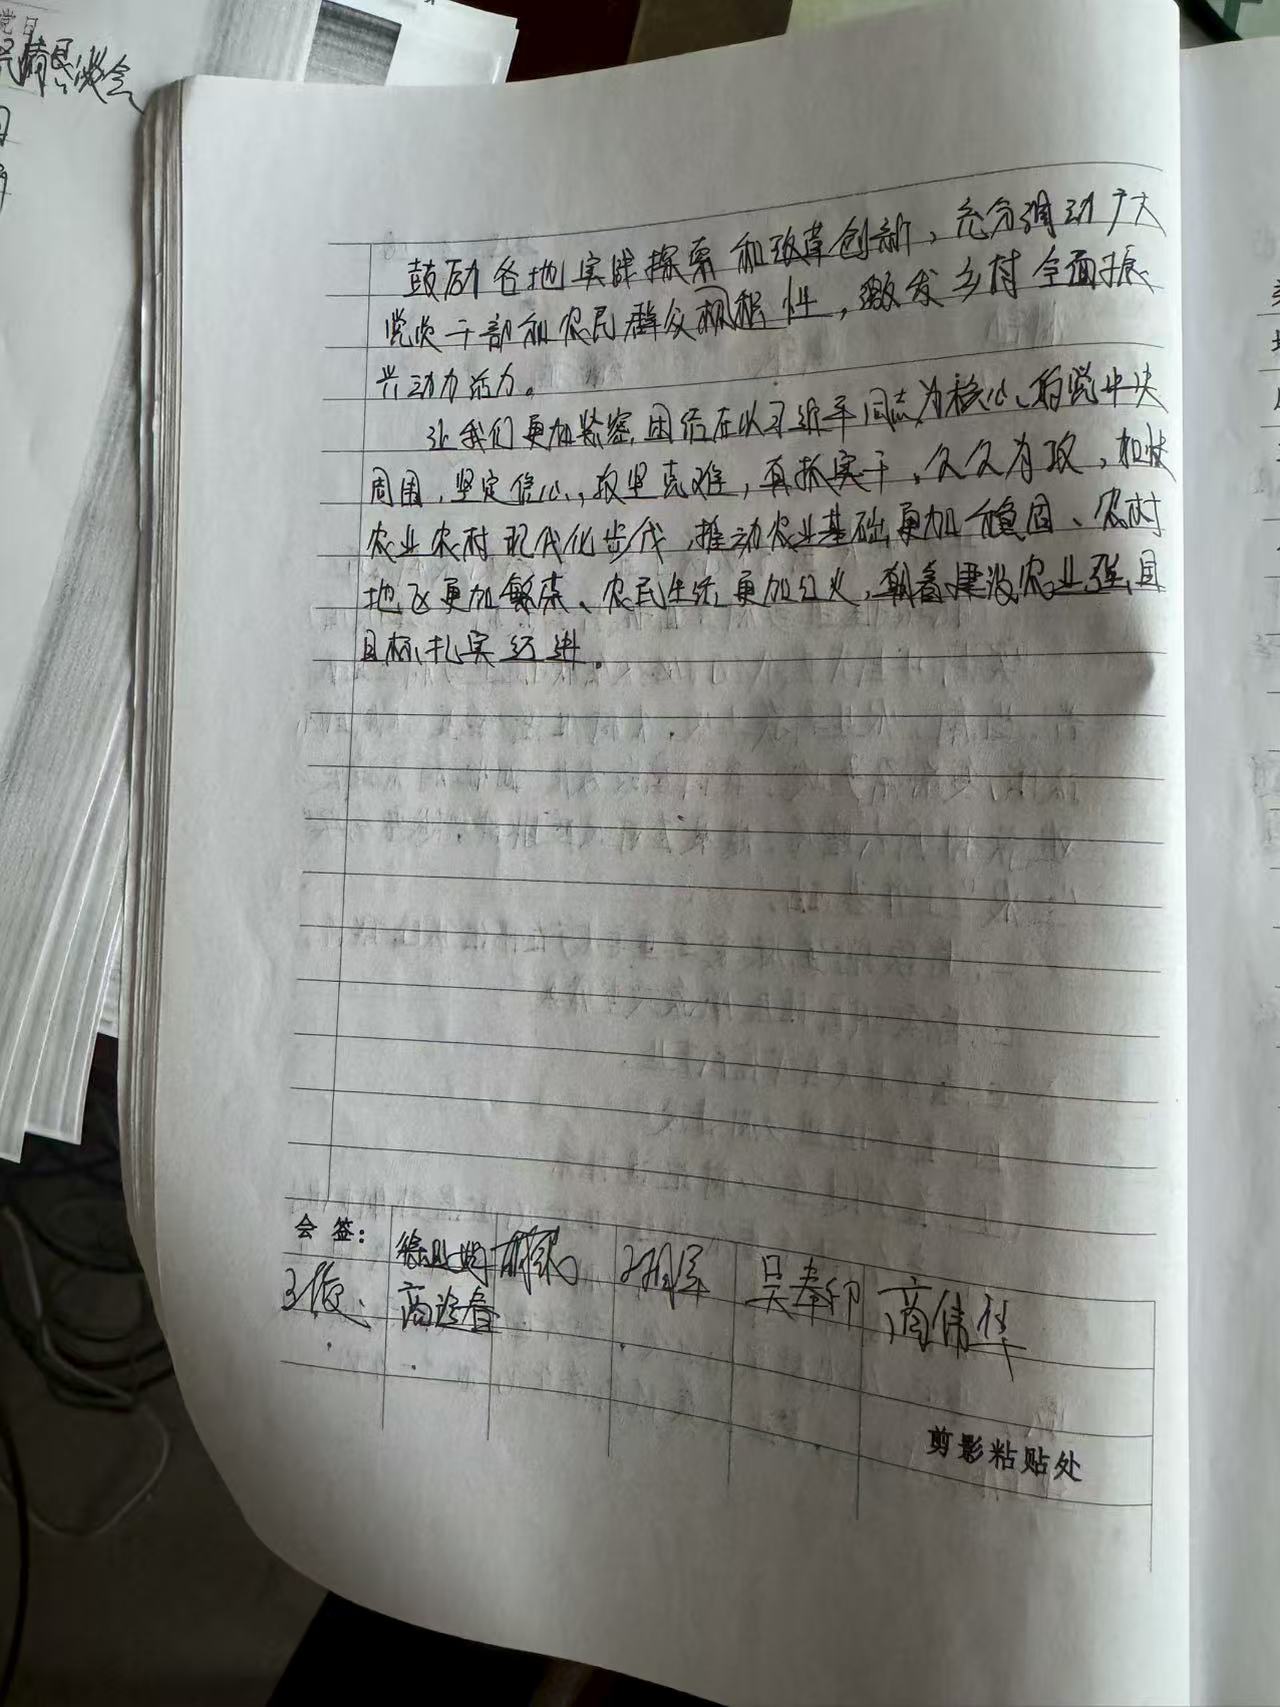 党日
鼓励各地实践探索和改革创新，充分调动广大
党员干部和农民群众积极性，激发乡村全面振
兴动力活力。
让我们更加紧密团结在以习近平同志为核心的党中央
周围，坚定信心，攻坚克难，真抓实干，久久为功，加快
农业农村现代化步伐，推动农业基础更加稳固、农村
地区更加繁荣、农民生活更加红火，朝着建设农业强国
目标扎实迈进。
会签：
吴奉印 商伟华
剪影粘贴处